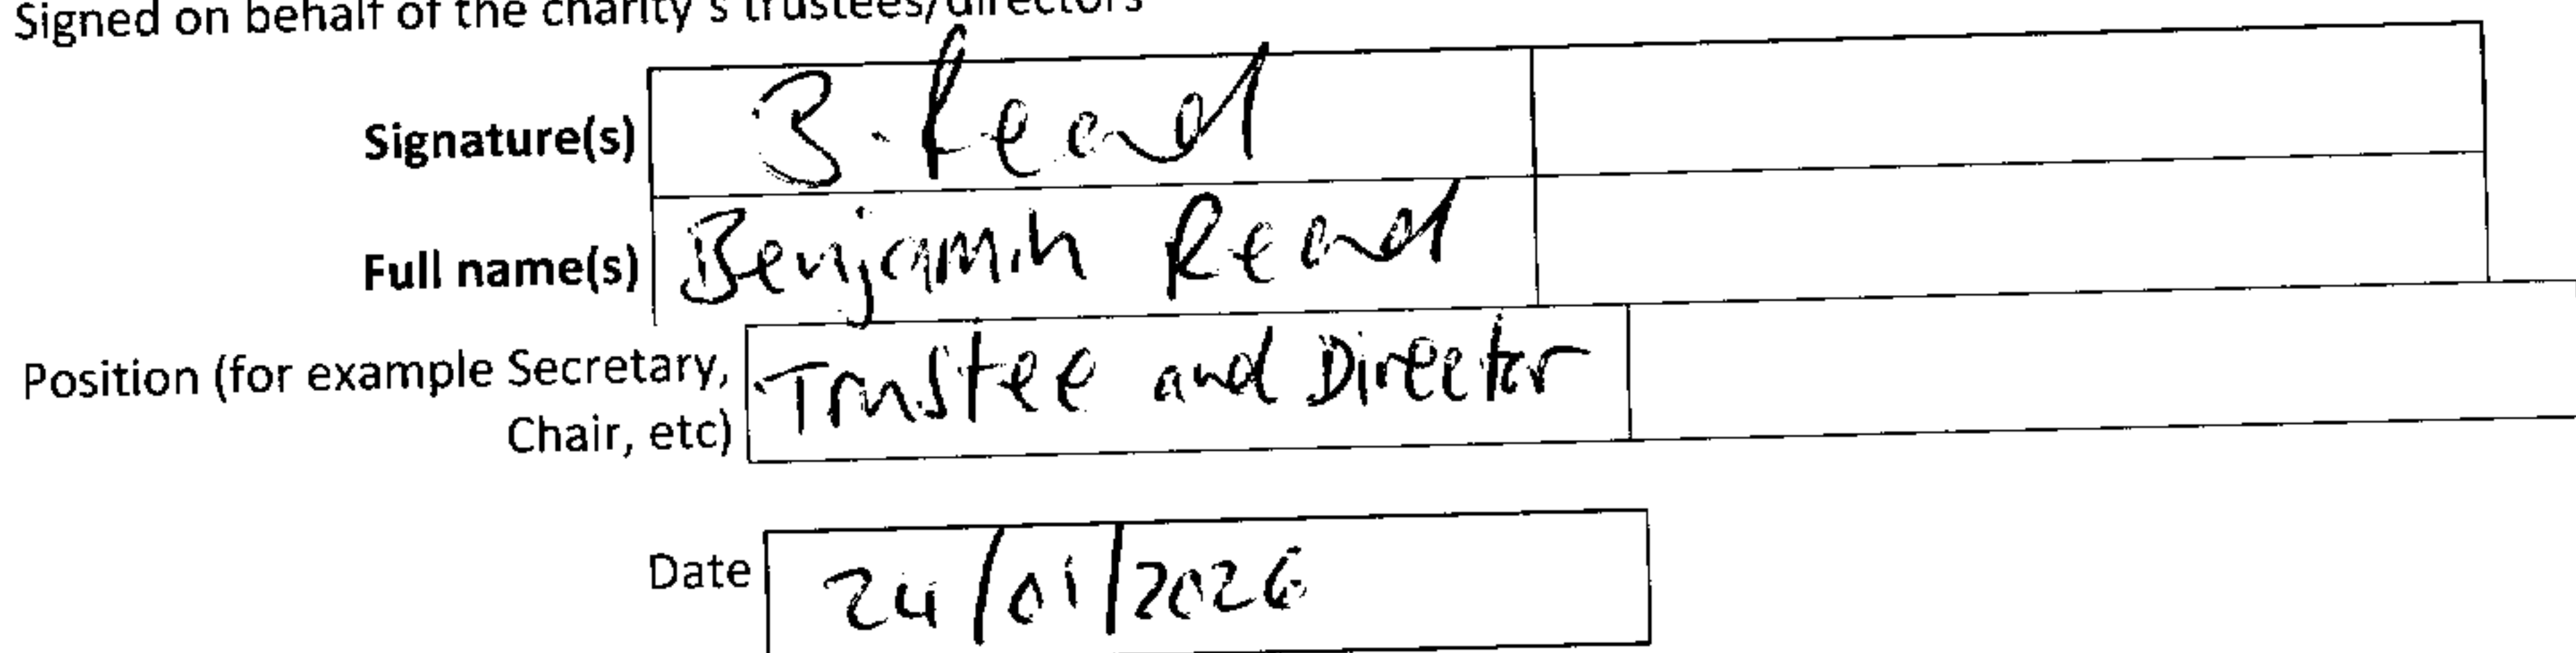 Signed on behalf of the charity's trustees/directors
Signature(s) B. Read
Full name(s) Benjamin Read
Position (for example Secretary, Trustee and Director
Chair, etc)
Date 24/01/2026